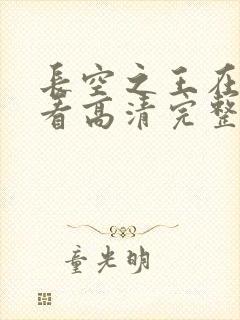 长空之王在
看高清完整
童光明